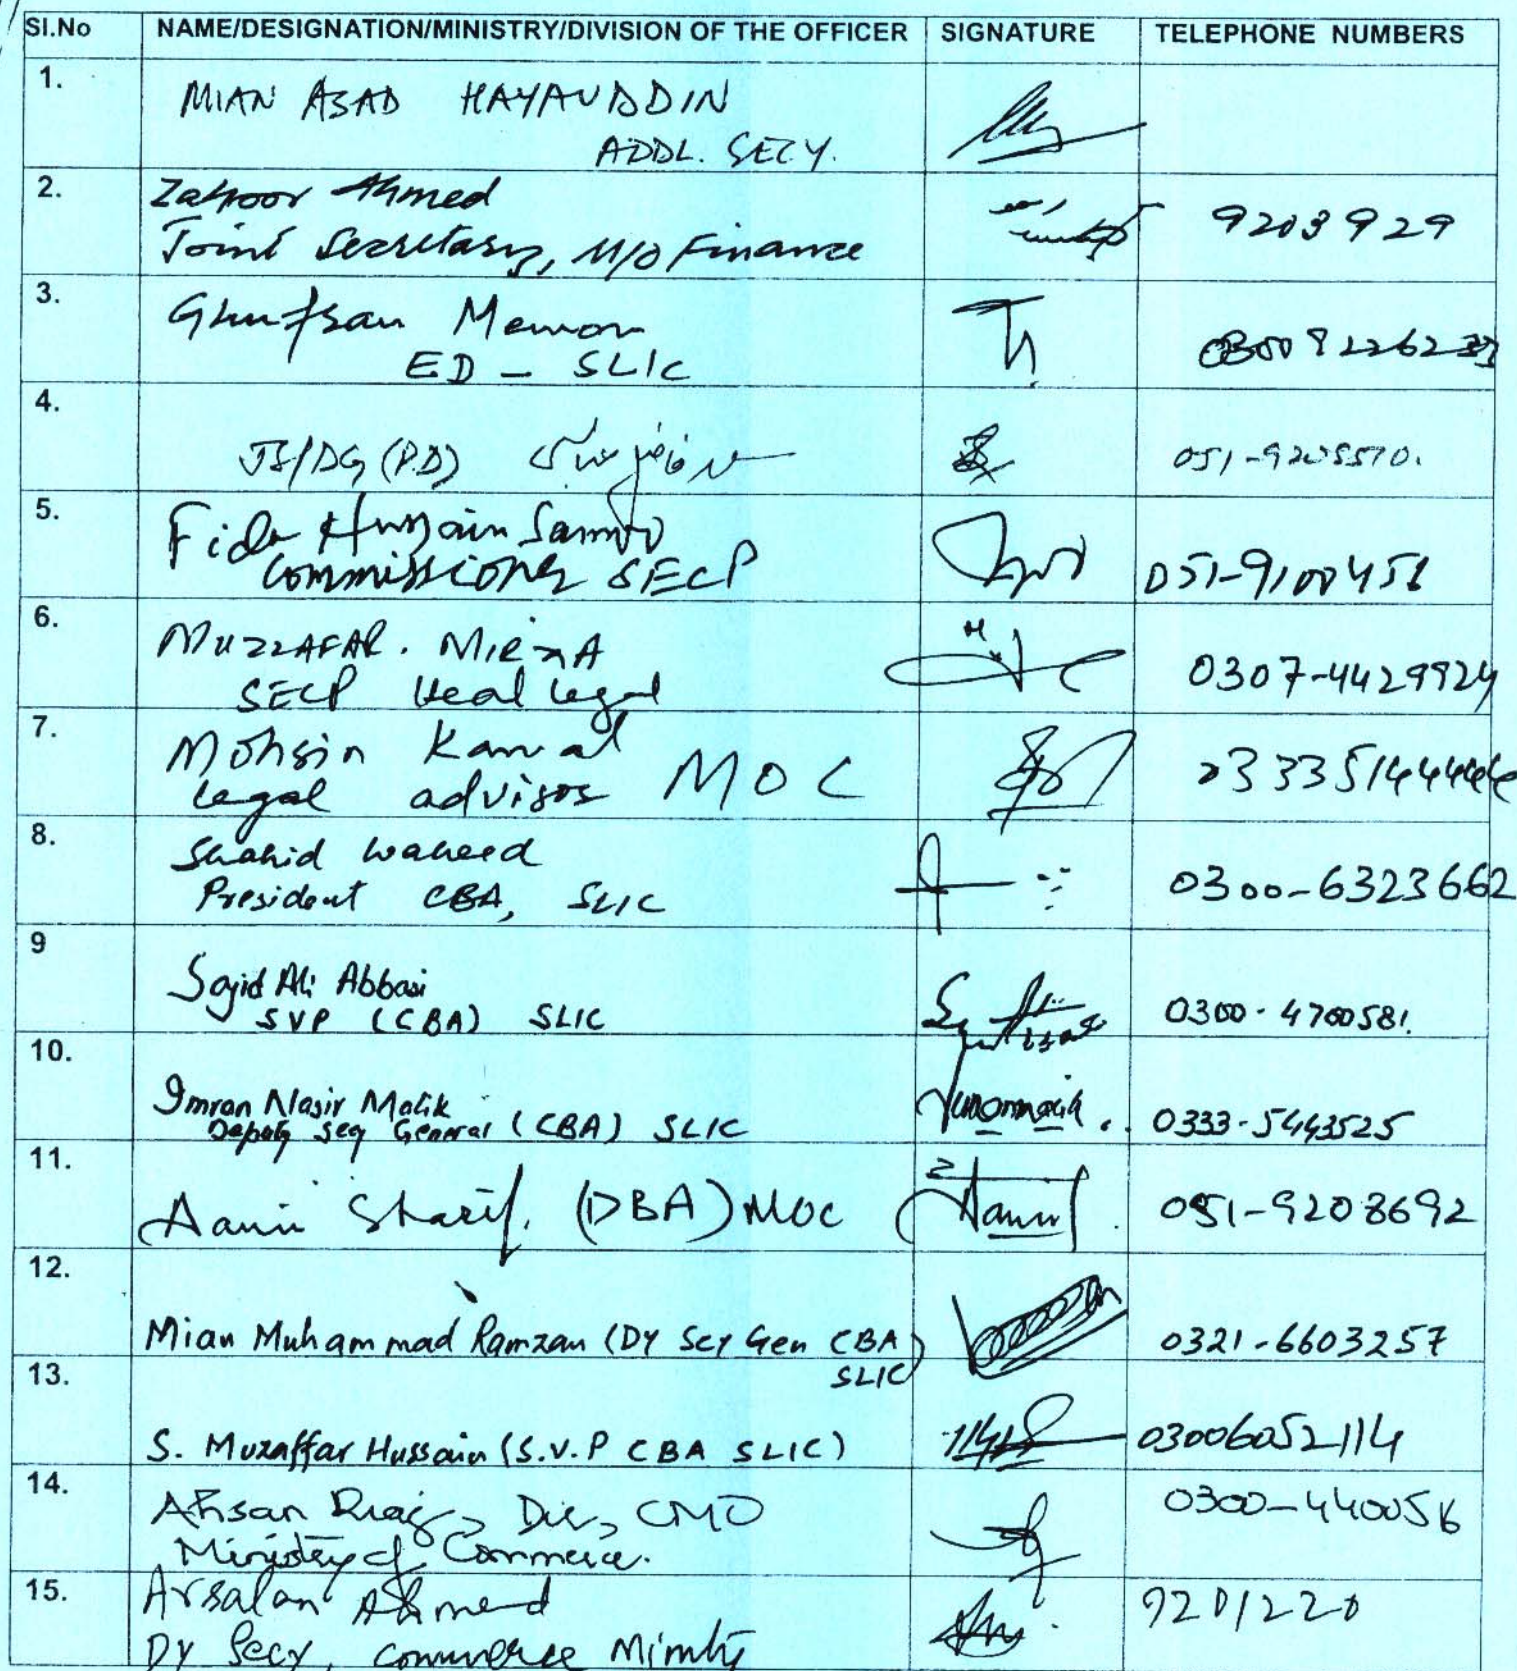 Sl.No NAME/DESIGNATION/MINISTRY/DIVISION OF THE OFFICER SIGNATURE TELEPHONE NUMBERS
1. MIAN ASAD HAYAUDDIN
ADDL. SECY.
2. Zahoor Ahmed
Joint Secretary, M/O Finance 9203929
3. Ghufran Memon
ED - SLIC
4.
JS/DG (P.D)
5. Fida Hussain Samoo
Commissioner SECP 051-9100451
6. MUZZAFAR. MIRZA
SECP Head legal 0307-4429924
7. Mohsin Kamal
legal advisor MOC 03335144444
8. Shahid Waheed
President CBA, SLIC 0300-6323662
9 Sajid Ali Abbasi
SVP (CBA) SLIC 0300-4700581.
10.
Imran Nasir Malik
Deputy Seq General (CBA) SLIC 0333-5443525
11.
Aamir Sharif. (DBA) MOC 051-9208692
12.
Mian Muhammad Ramzan (DY Scy Gen CBA 0321-6603257
SLIC)
13.
S. Muzaffar Hussain (S.V.P CBA SLIC) 03006052114
14. Ahsan Riaz, Dir, CMO
Ministry of Commerce.
15. Arsalan Ahmed 9201220
DY Secy, Commerce